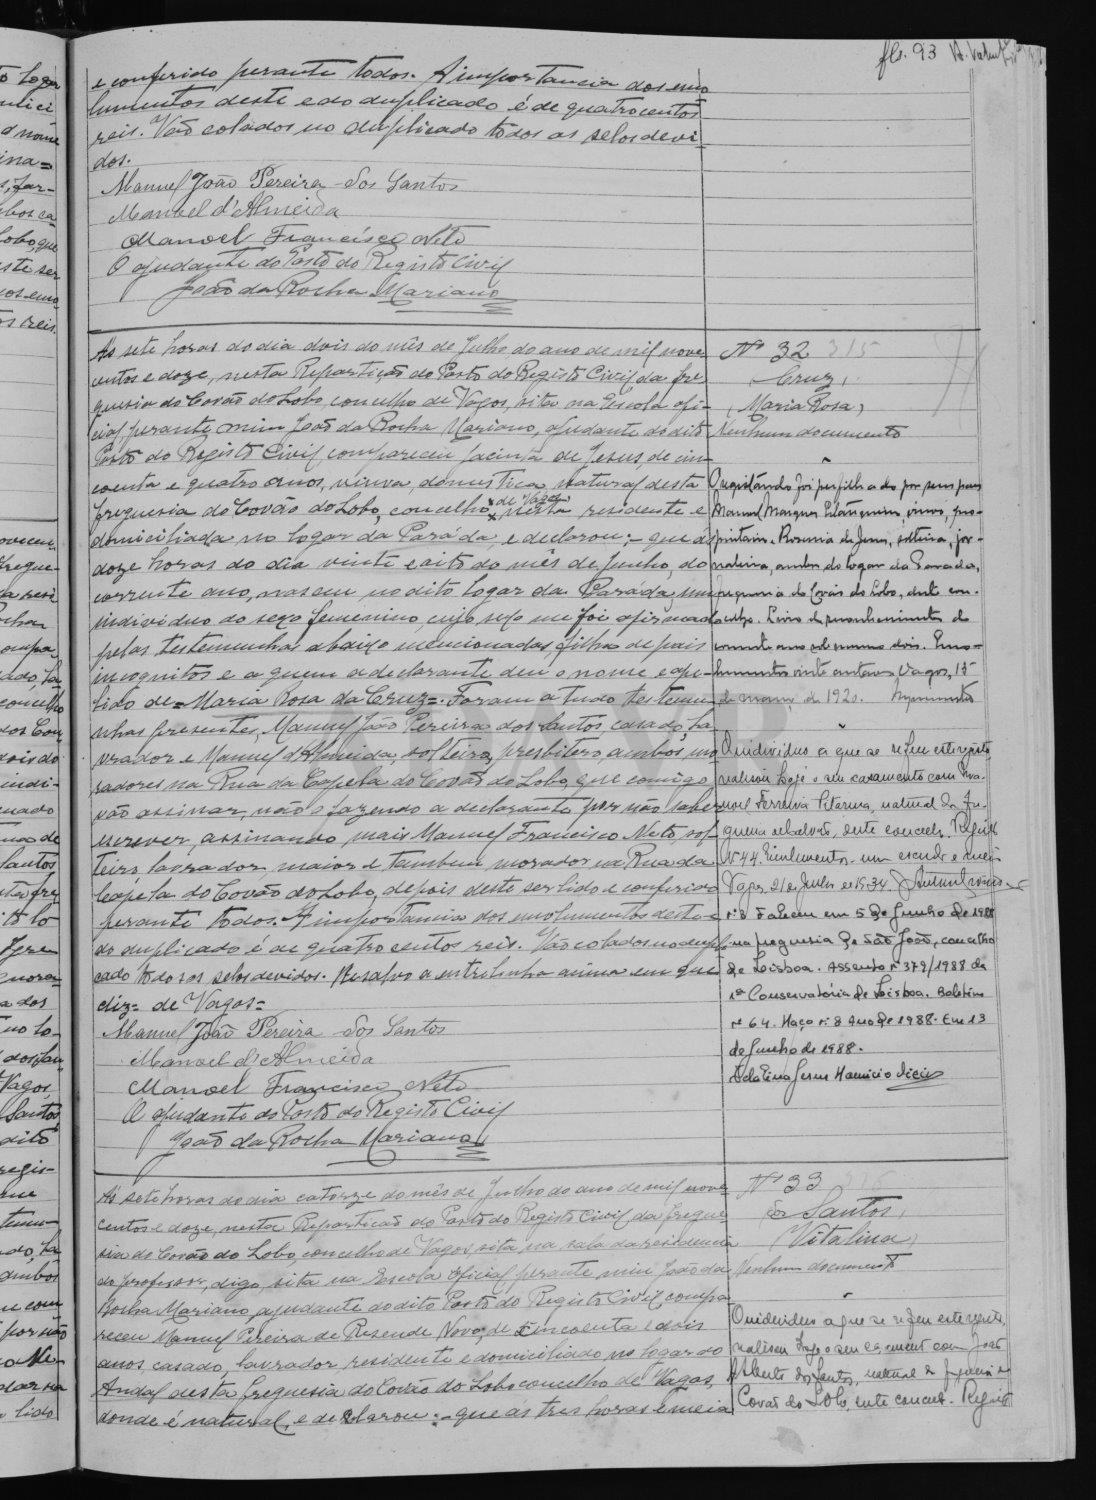 fls. 93
e conferido perante todos. A importancia dos emo
lumentos deste e do duplicado é de quatrocentos
reis. Vão colados no duplicado todos os selos devi-
dos.
Manuel João Pereira dos Santos
Manoel d'Almeida
Manoel Francisco Neto
O ajudante do Posto do Registo Civil
João da Rocha Mariano
Ás sete horas do dia dois do mês de Julho do ano de mil nove
centos e doze, nesta Repartição do Posto do Registo Civil da fre
guesia do Covão do Lobo, concelho de Vagos, sita na Escola ofi-
cial, perante mim João da Rocha Mariano, ajudante do dito
Posto do Registo Civil, compareceu Jacinta de Jesus, de cin-
coenta e quatro anos, viuva, domestica, natural desta
freguesia do Covão do Lobo, concelho de Vagos, nesta residente e
domiciliada no logar da Paráda, e declarou:- que ás
doze horas do dia vinte e oito do mês de Junho, do
corrente ano, nasceu no dito logar da Paráda, um
individuo do sexo femenino, cujo sexo me foi afirmado
pelas testemunhas abaixo mencionadas, filha de pais
incognitos e a quem a declarante deu o nome e ape-
lido de = Maria Rosa da Cruz=. Foram a tudo testemu-
nhas presentes, Manuel João Pereira dos Santos, casado, la-
vrador e Manuel d'Almeida, solteiro, presbitero, ambos, mo
radores na Rua da Capela do Covão do Lobo, que comigo
vão assinar, não o fazendo a declarante por não saber
escrever, assinando mais Manuel Francisco Neto, sol-
teiro, lavrador, maior e tambem morador na Rua da
Capela do Covão do Lobo, depois deste ser lido e conferido
perante todos. A importancia dos emolumentos deste e
do duplicado é de quatro centos reis. Vão colados no dupli-
cado todos os selos devidos. Resalvo a entrelinha acima em que
diz= de Vagos=
Manuel João Pereira dos Santos
Manoel d'Almeida
Manoel Francisco Neto
O ajudante do Posto do Registo Civil
João da Rocha Mariano
Nº 32 315
Cruz,
(Maria Rosa)
Nenhum documento
O registando foi perfilhado por seus paes
Manuel Marques viuvo, pro-
prietario e Rosaria de Jesus, solteira, jor-
naleira, ambos do logar da Parada,
freguesia do Covão do Lobo, deste con-
celho. Livro de reconhecimentos do
corrente ano sob numero dois. Emo-
lumentos vinte centavos. Vagos, 15
de março de 1920.
O individuo a que se refere este registo
realisou hoje o seu casamento com Ma-
nuel Ferreira natural da fre-
guesia deste concelho. Registo
Nº 44. Emolumentos um escudo e meio
Vagos, 21 de Julho de 1934.
nº 3 Faleceu em 5 de Junho de 1988
na freguesia de São João, concelho
de Lisboa. Assento nº 379/1988 da
1ª Conservatória de Lisboa. Boletim
nº 64. Maço nº 8 Ano de 1988. Em 13
de Junho de 1988.
Ás sete horas do dia catorze do mês de Julho do ano de mil nove
centos e doze, nesta Repartição do Posto do Registo Civil da fregue
sia do Covão do Lobo, concelho de Vagos, sita na sala da residencia
do professor, digo, sita na Escola Oficial, perante mim João da
Rocha Mariano, ajudante do dito Posto do Registo Civil, compa
receu Manuel Pereira de Resende Novo, de cincoenta e dois
anos, casado, lavrador, residente e domiciliado no logar do
Andal desta freguesia do Covão do Lobo concelho de Vagos,
donde é natural, e declarou:- que ás tres horas e meia
Nº 33 316
dos Santos,
(Vitalina)
Nenhum documento
O individuo a que se refere este registo,
realisou hoje o seu casamento com João
Alberto dos Santos, natural da freguesia de
Covão do Lobo, deste concelho. Registo